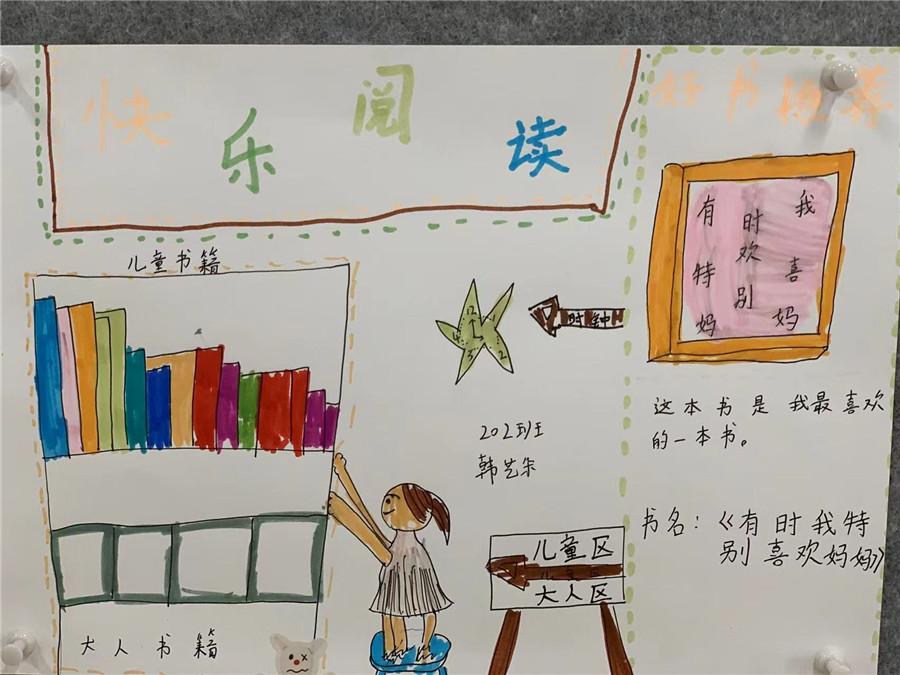 快乐阅读
好书推荐
有 时 我
特 欢 喜
别
妈 妈
儿童书籍
时钟
202班
韩艺
这本书是我最喜欢
的一本书。
书名:《有时我特
别喜欢妈妈》
儿童区
大人区
大人书籍